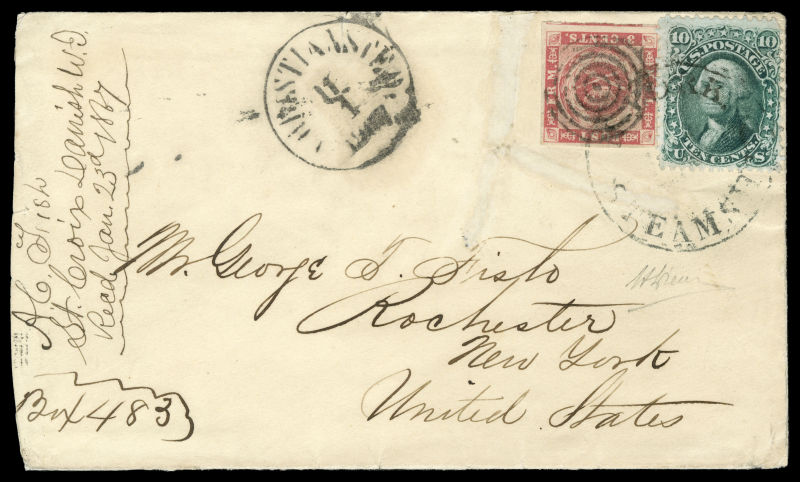 A. C. Fish
St. Croix Danish W. I.
Recd Jan. 23d 1867
Box 483
CHRISTIANSTED.
11
1
3 CENTS.
FRM.
10 10
U.S. POSTAGE
U TEN CENTS S
STEAMSHIP
Mr. George T. Fish
Rochester
New York
United States